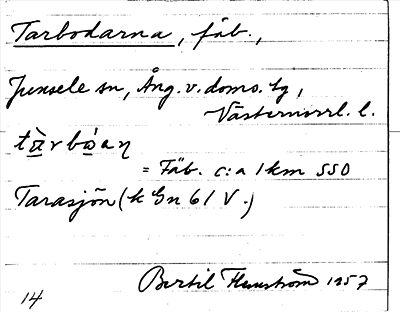 Tarbodarna, fäb.,
Junsele sn, Ång. v. doms. tg,
Västernorrl. l.
tàrbòan
= Fäb. c:a 1 km SSO
Tarasjön (k Gn 61 V.)
Bertil Flemström 1957
14